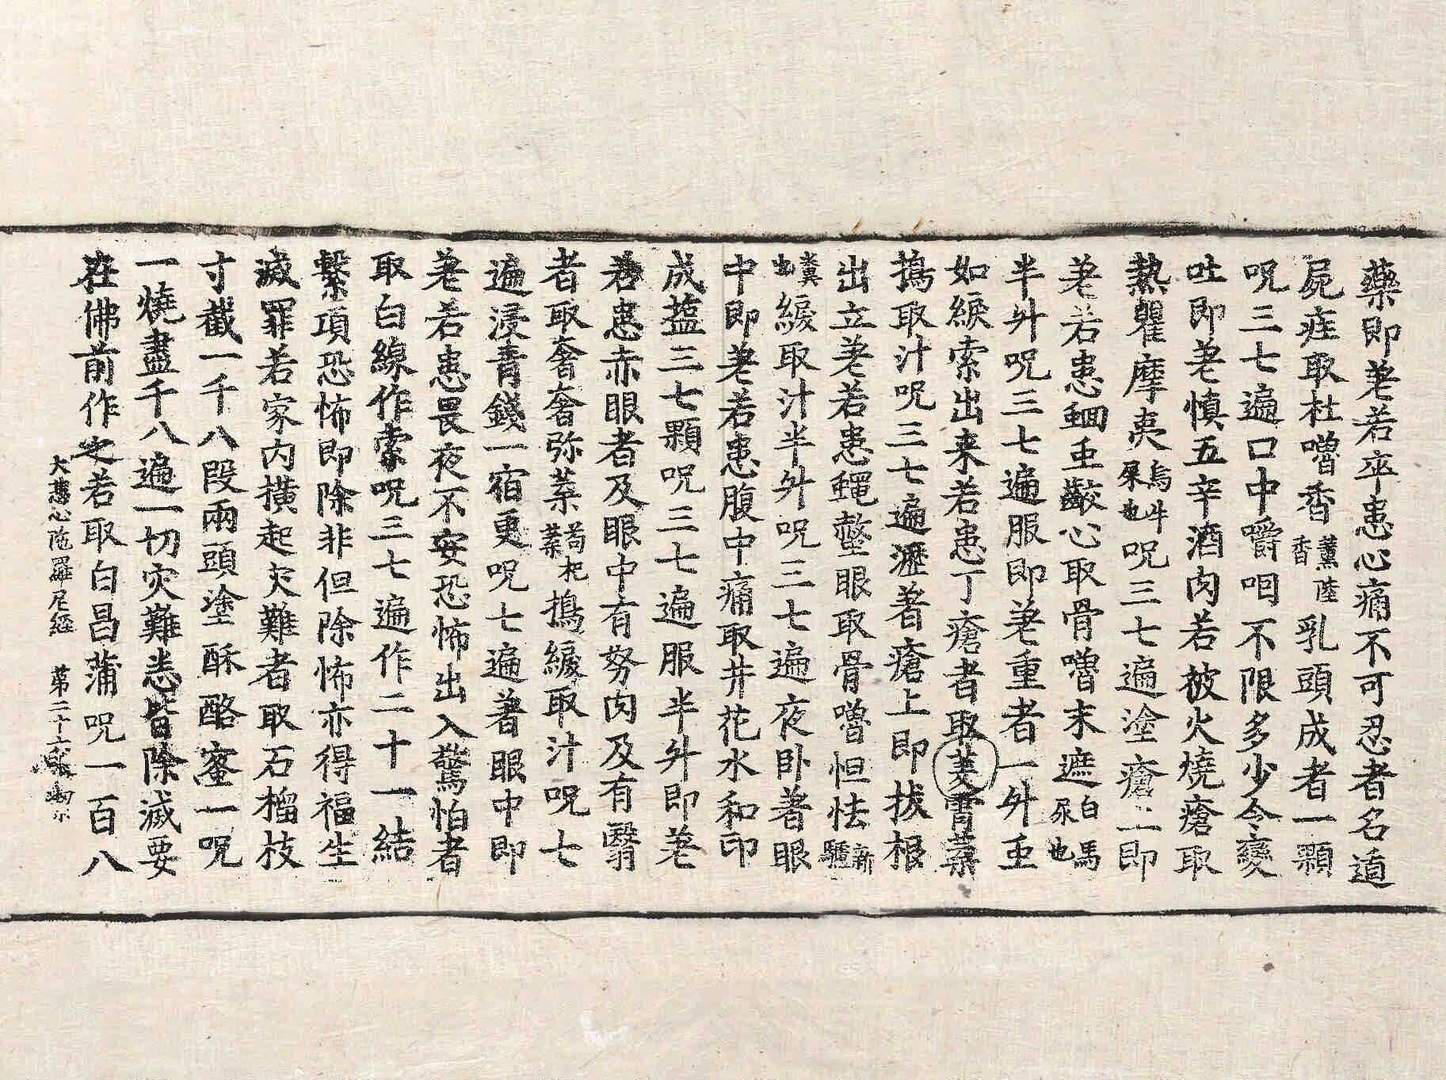 藥即差若卒患心痛不可忍者名遁
屍疰取杜嚕香薰陸香乳頭成者一顆
呪三七遍口中嚼咽不限多少令變
吐即差慎五辛酒肉若被火燒瘡取
熱瞿摩夷烏牛屎也呪三七遍塗瘡上即
差若患蛔虫齩心取骨嚕末遮白馬尿也
半升呪三七遍服即差重者一升虫
如綟索出来若患丁瘡者取凌霄葉
擣取汁呪三七遍瀝著瘡上即拔根
出立差若患蠅螫眼取骨嚕怛佉新驢
糞也緩取汁半升呪三七遍夜卧著眼
中即差若患腹中痛取井花水和印
成塩三七顆呪三七遍服半升即差
若患赤眼者及眼中有努肉及有翳
者取奢奢弥葉茍杞葉擣緩取汁呪七
遍浸青錢一宿更呪七遍著眼中即
差若患畏夜不安恐怖出入驚怕者
取白線作索呪三七遍作二十一結
繫項恐怖即除非但除怖亦得福生
滅罪若家內橫起灾難者取石榴枝
寸截一千八段兩頭塗酥酪蜜一呪
一燒盡千八遍一切灾難悉皆除滅要
在佛前作之若取白昌蒲呪一百八
大悲心陁羅尼經 苐二十